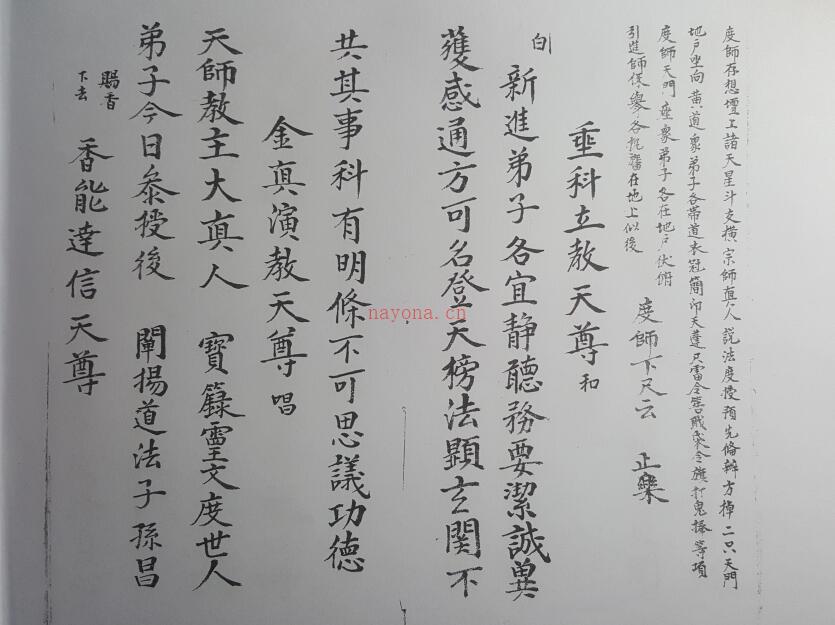 度師存想壇上諸天星斗支橫宗師真人説法度授預先俻辦方棹二只天門
地户坐向黄道衆弟子各帶道衣冠簡印天蓬尺雷令誥戒策令旗打鬼棒等項
度師天門座衆弟子各在地户伏俯
引進師保舉各執醮在地上似後
度師下尺云 正樂
垂科立教天尊 和
白
新進弟子各宜静聽務要潔誠兾
獲感通方可名登天榜法顯玄関不
共其事科有明條不可思議功德
金真演教天尊 唱
天師教主大真人 寳籙靈文度世人
弟子今日叅授後 闡揚道法子孫昌
賜香
下去
香能達信天尊
nayona.cn